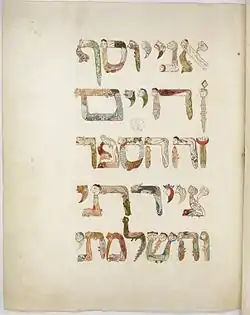 אני יוסף
ן חיים
זה הספר
ציירתי
והשלמתי